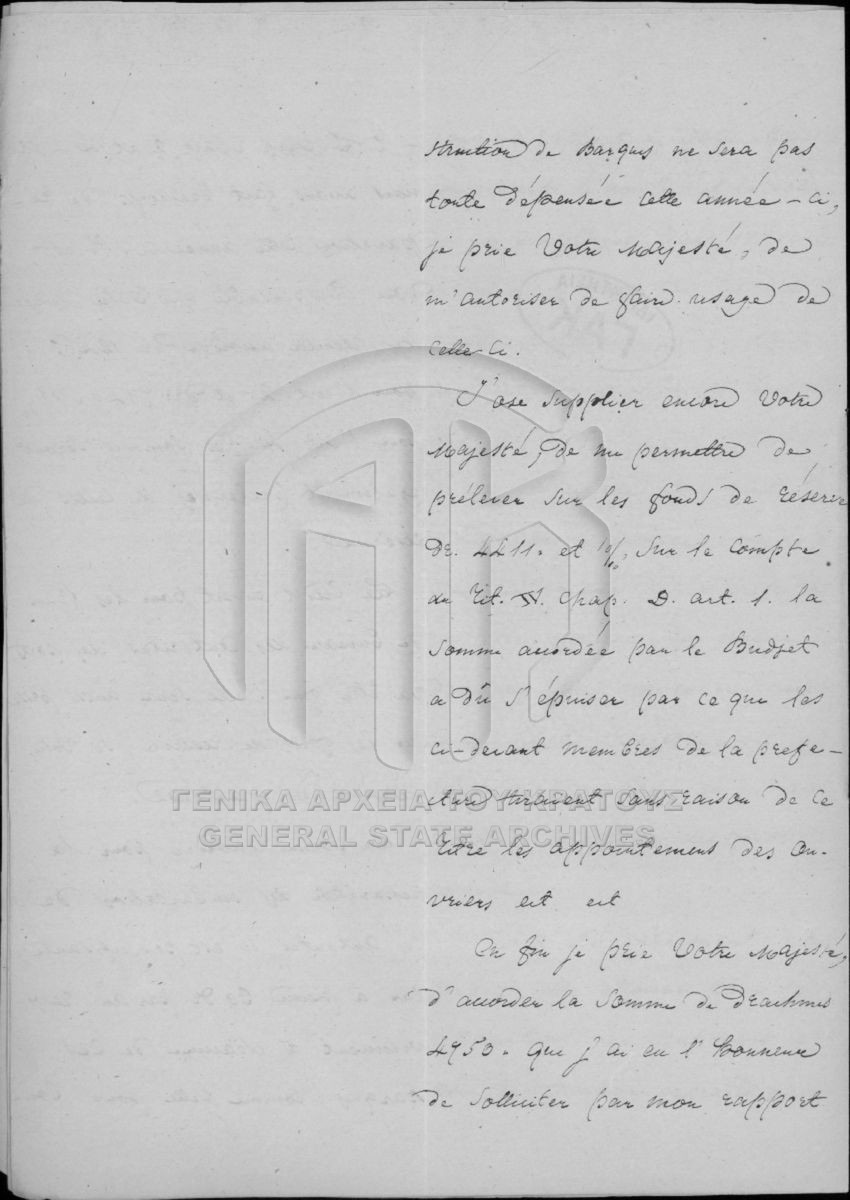 struction de Barques ne sera pas
toute dépensée cette année-ci,
je prie Votre Majesté, de
m'autoriser de faire usage de
celle-ci.
J'ose supplier encore Votre
Majesté, de me permettre de
préléver sur les fonds de réserve
Dr. 4211. et sur le compte
du Tit. chap. D. art. 1. la
somme accordée par le Budjet
a dû s'épuiser par ce que les
ci-devant membres de la prefe-
cture tiraient sans raison de ce
titre les appointements des ou-
vriers ect ect
En fin je prie Votre Majesté,
d'accorder la somme de drachmes
4950. que j'ai eu l'honneur
de solliciter par mon rapport
ΓΕΝΙΚΑ ΑΡΧΕΙΑ ΤΟΥ ΚΡΑΤΟΥΣ
GENERAL STATE ARCHIVES